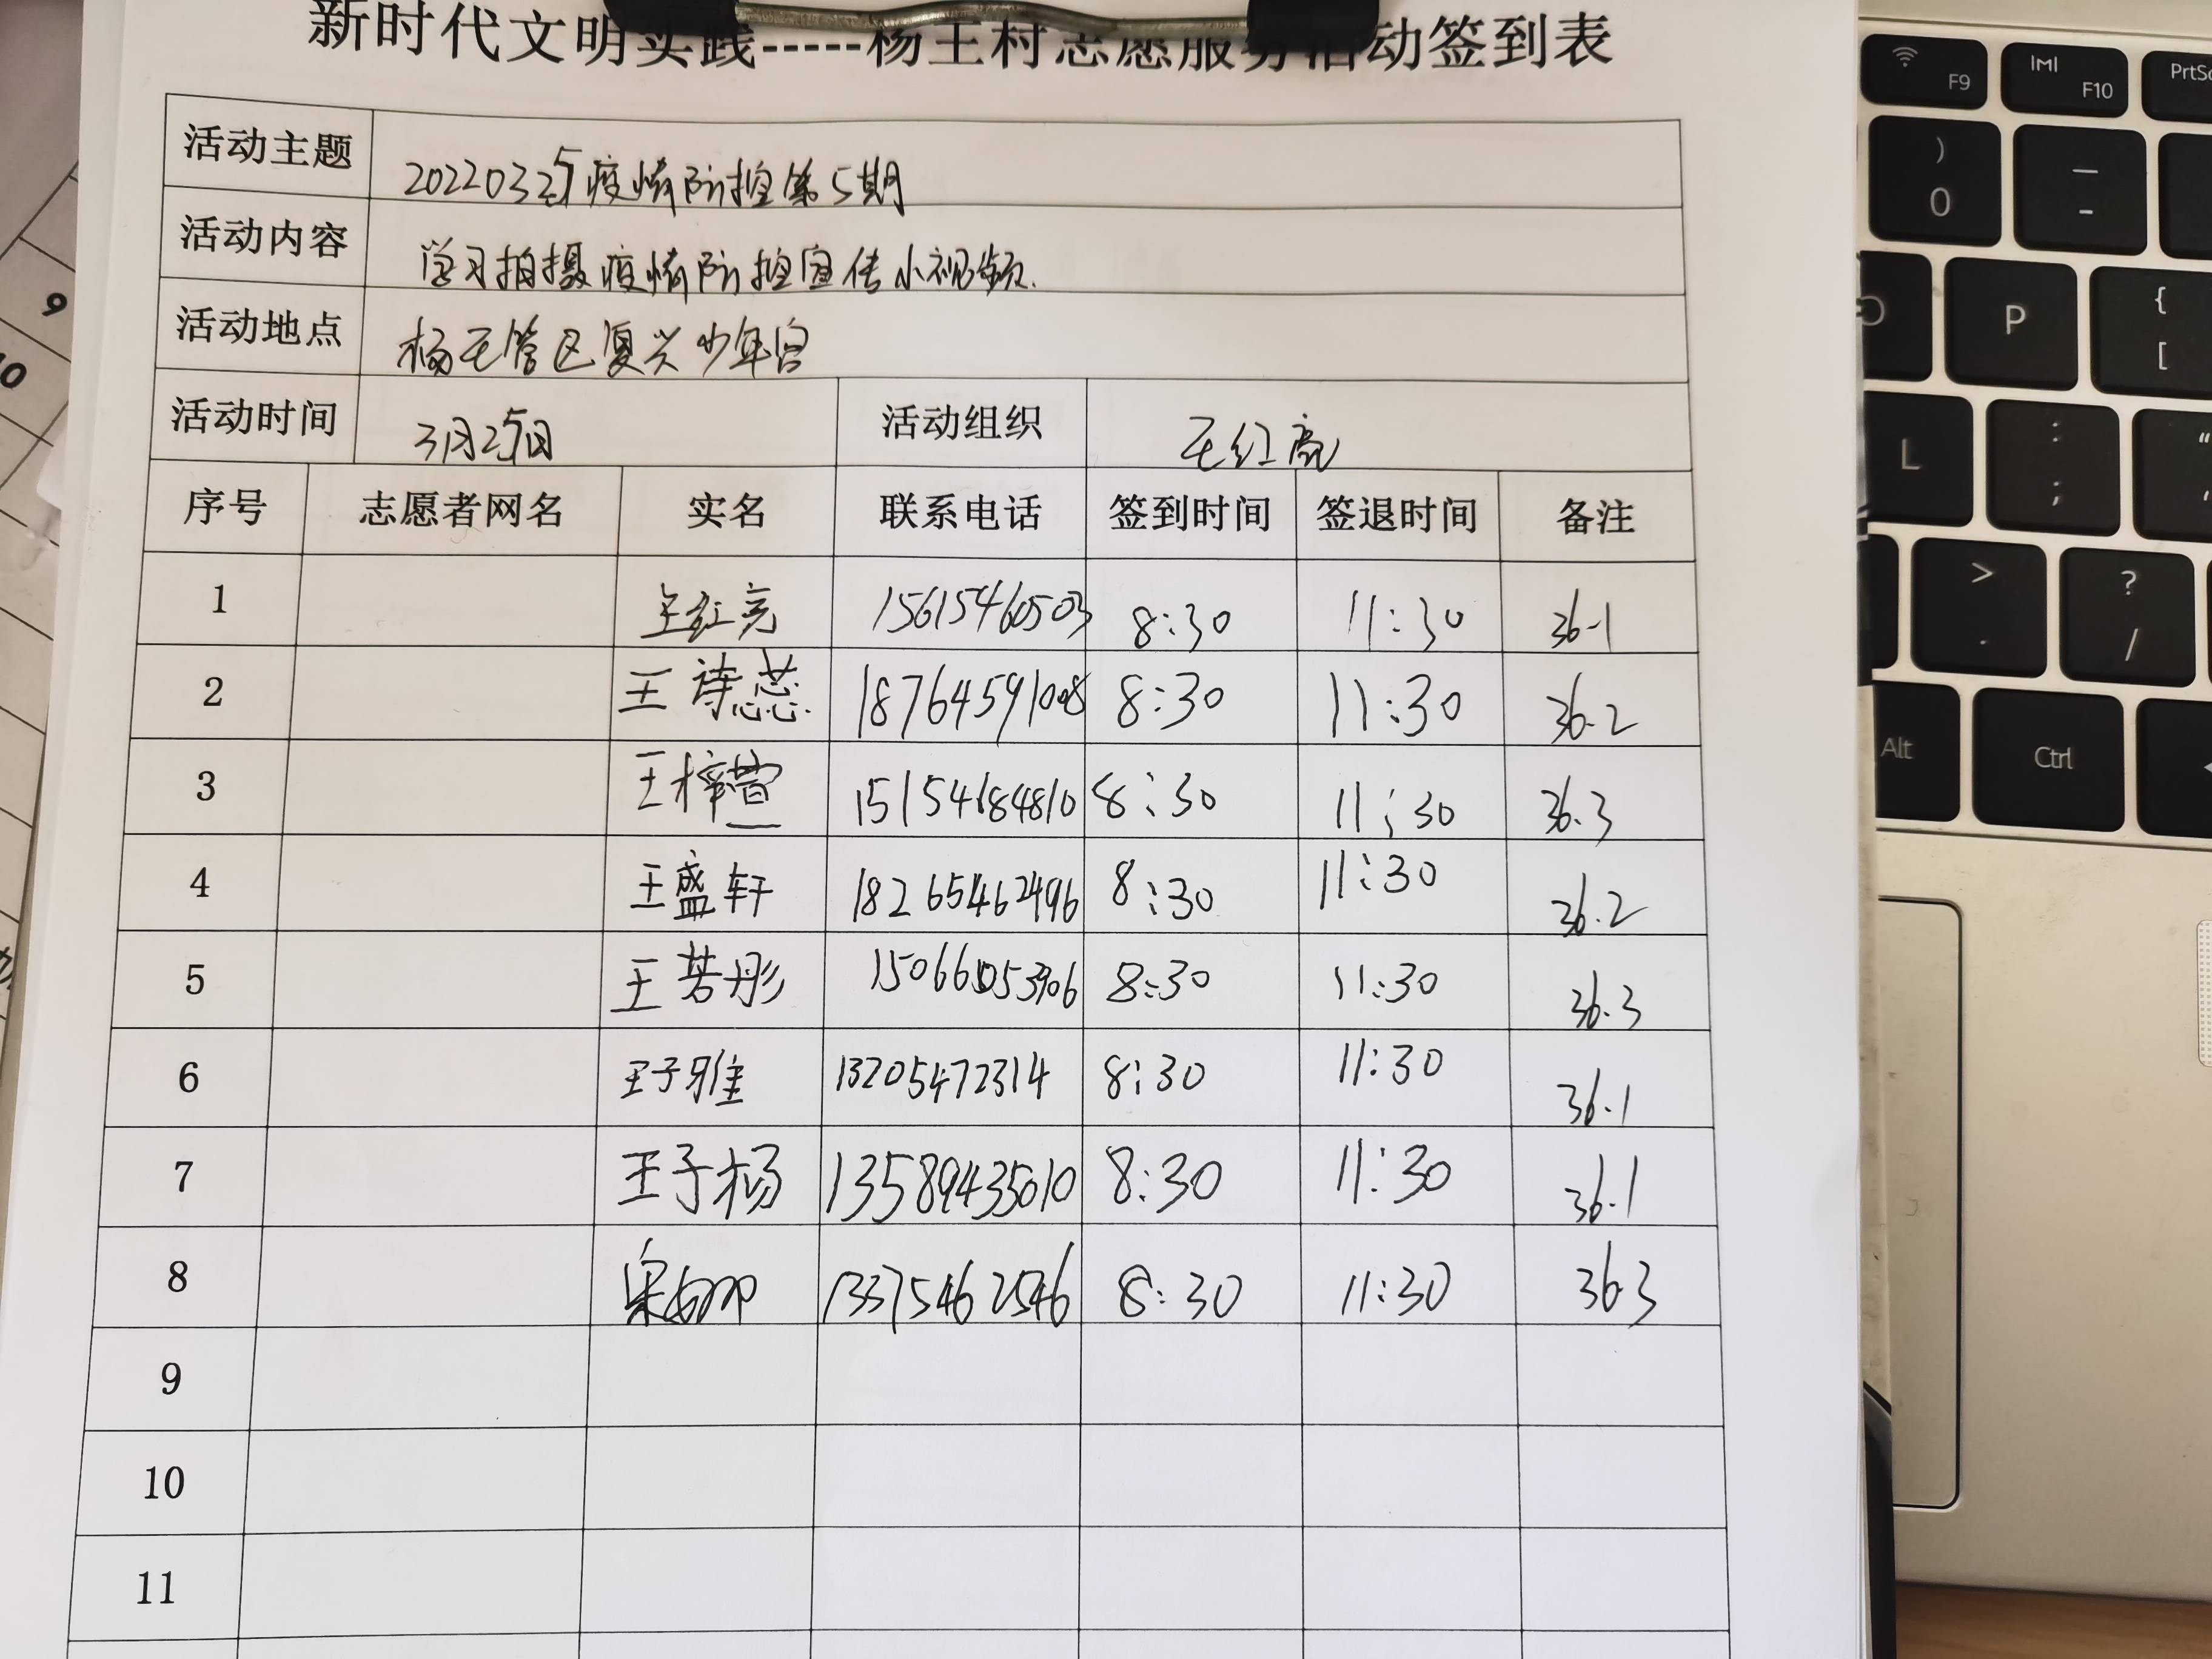 新时代文明实践-----杨王村志愿服务活动签到表
活动主题 20220325疫情防控第5期
活动内容 学习拍摄疫情防控宣传小视频.
活动地点 杨王管区复兴少年宫
活动时间 3月25日 活动组织 王红亮
序号 志愿者网名 实名 联系电话 签到时间 签退时间 备注
1 王红亮 15615460503 8:30 11:30 36.1
2 王诗蕊 18764591008 8:30 11:30 36.2
3 王梓萱 15154184810 8:30 11:30 36.3
4 王盛轩 18265462496 8:30 11:30 36.2
5 王若彤 8:30 11:30 36.3
6 王子雅 13205472314 8:30 11:30 36.1
7 王子杨 13589435010 8:30 11:30 36.1
8 13375462546 8:30 11:30 36.3
9
10
11
9
10
F9
F10
PrtSc
)
0
—
-
P
{
[
L
:
;
“
>
.
?
/
Alt
Ctrl